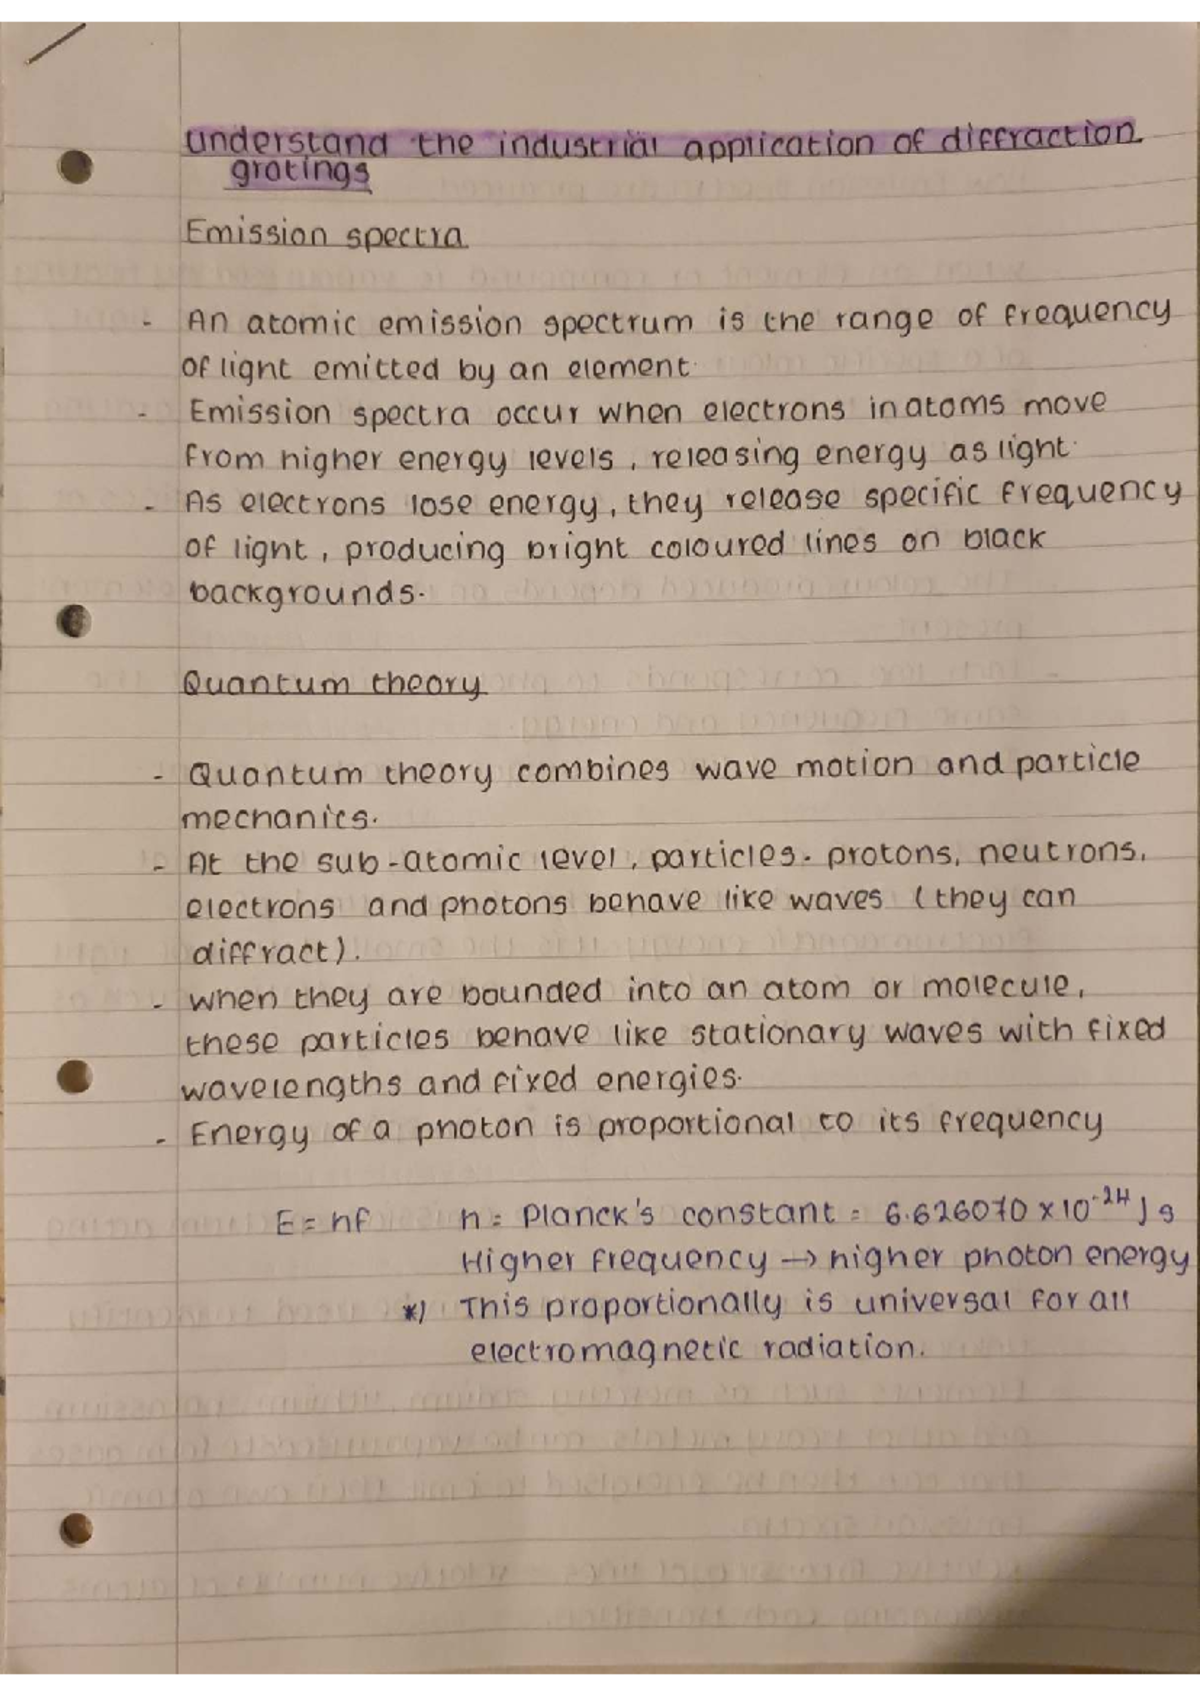 understand the industrial application of diffraction
gratings
Emission spectra
- An atomic emission spectrum is the range of frequency
of light emitted by an element.
- Emission spectra occur when electrons in atoms move
from higher energy levels, releasing energy as light.
- As electrons lose energy, they release specific frequency
of light, producing bright coloured lines on black
backgrounds.
Quantum theory
- Quantum theory combines wave motion and particle
mechanics.
- At the sub-atomic level, particles. protons, neutrons,
electrons and photons behave like waves (they can
diffract).
- when they are bounded into an atom or molecule,
these particles behave like stationary waves with fixed
wavelengths and fixed energies.
- Energy of a photon is proportional to its frequency
E = hf h = Planck's constant = 6.626070 x 10⁻²⁴ J s
Higher frequency → higher photon energy
*) This proportionally is universal for all
electromagnetic radiation.